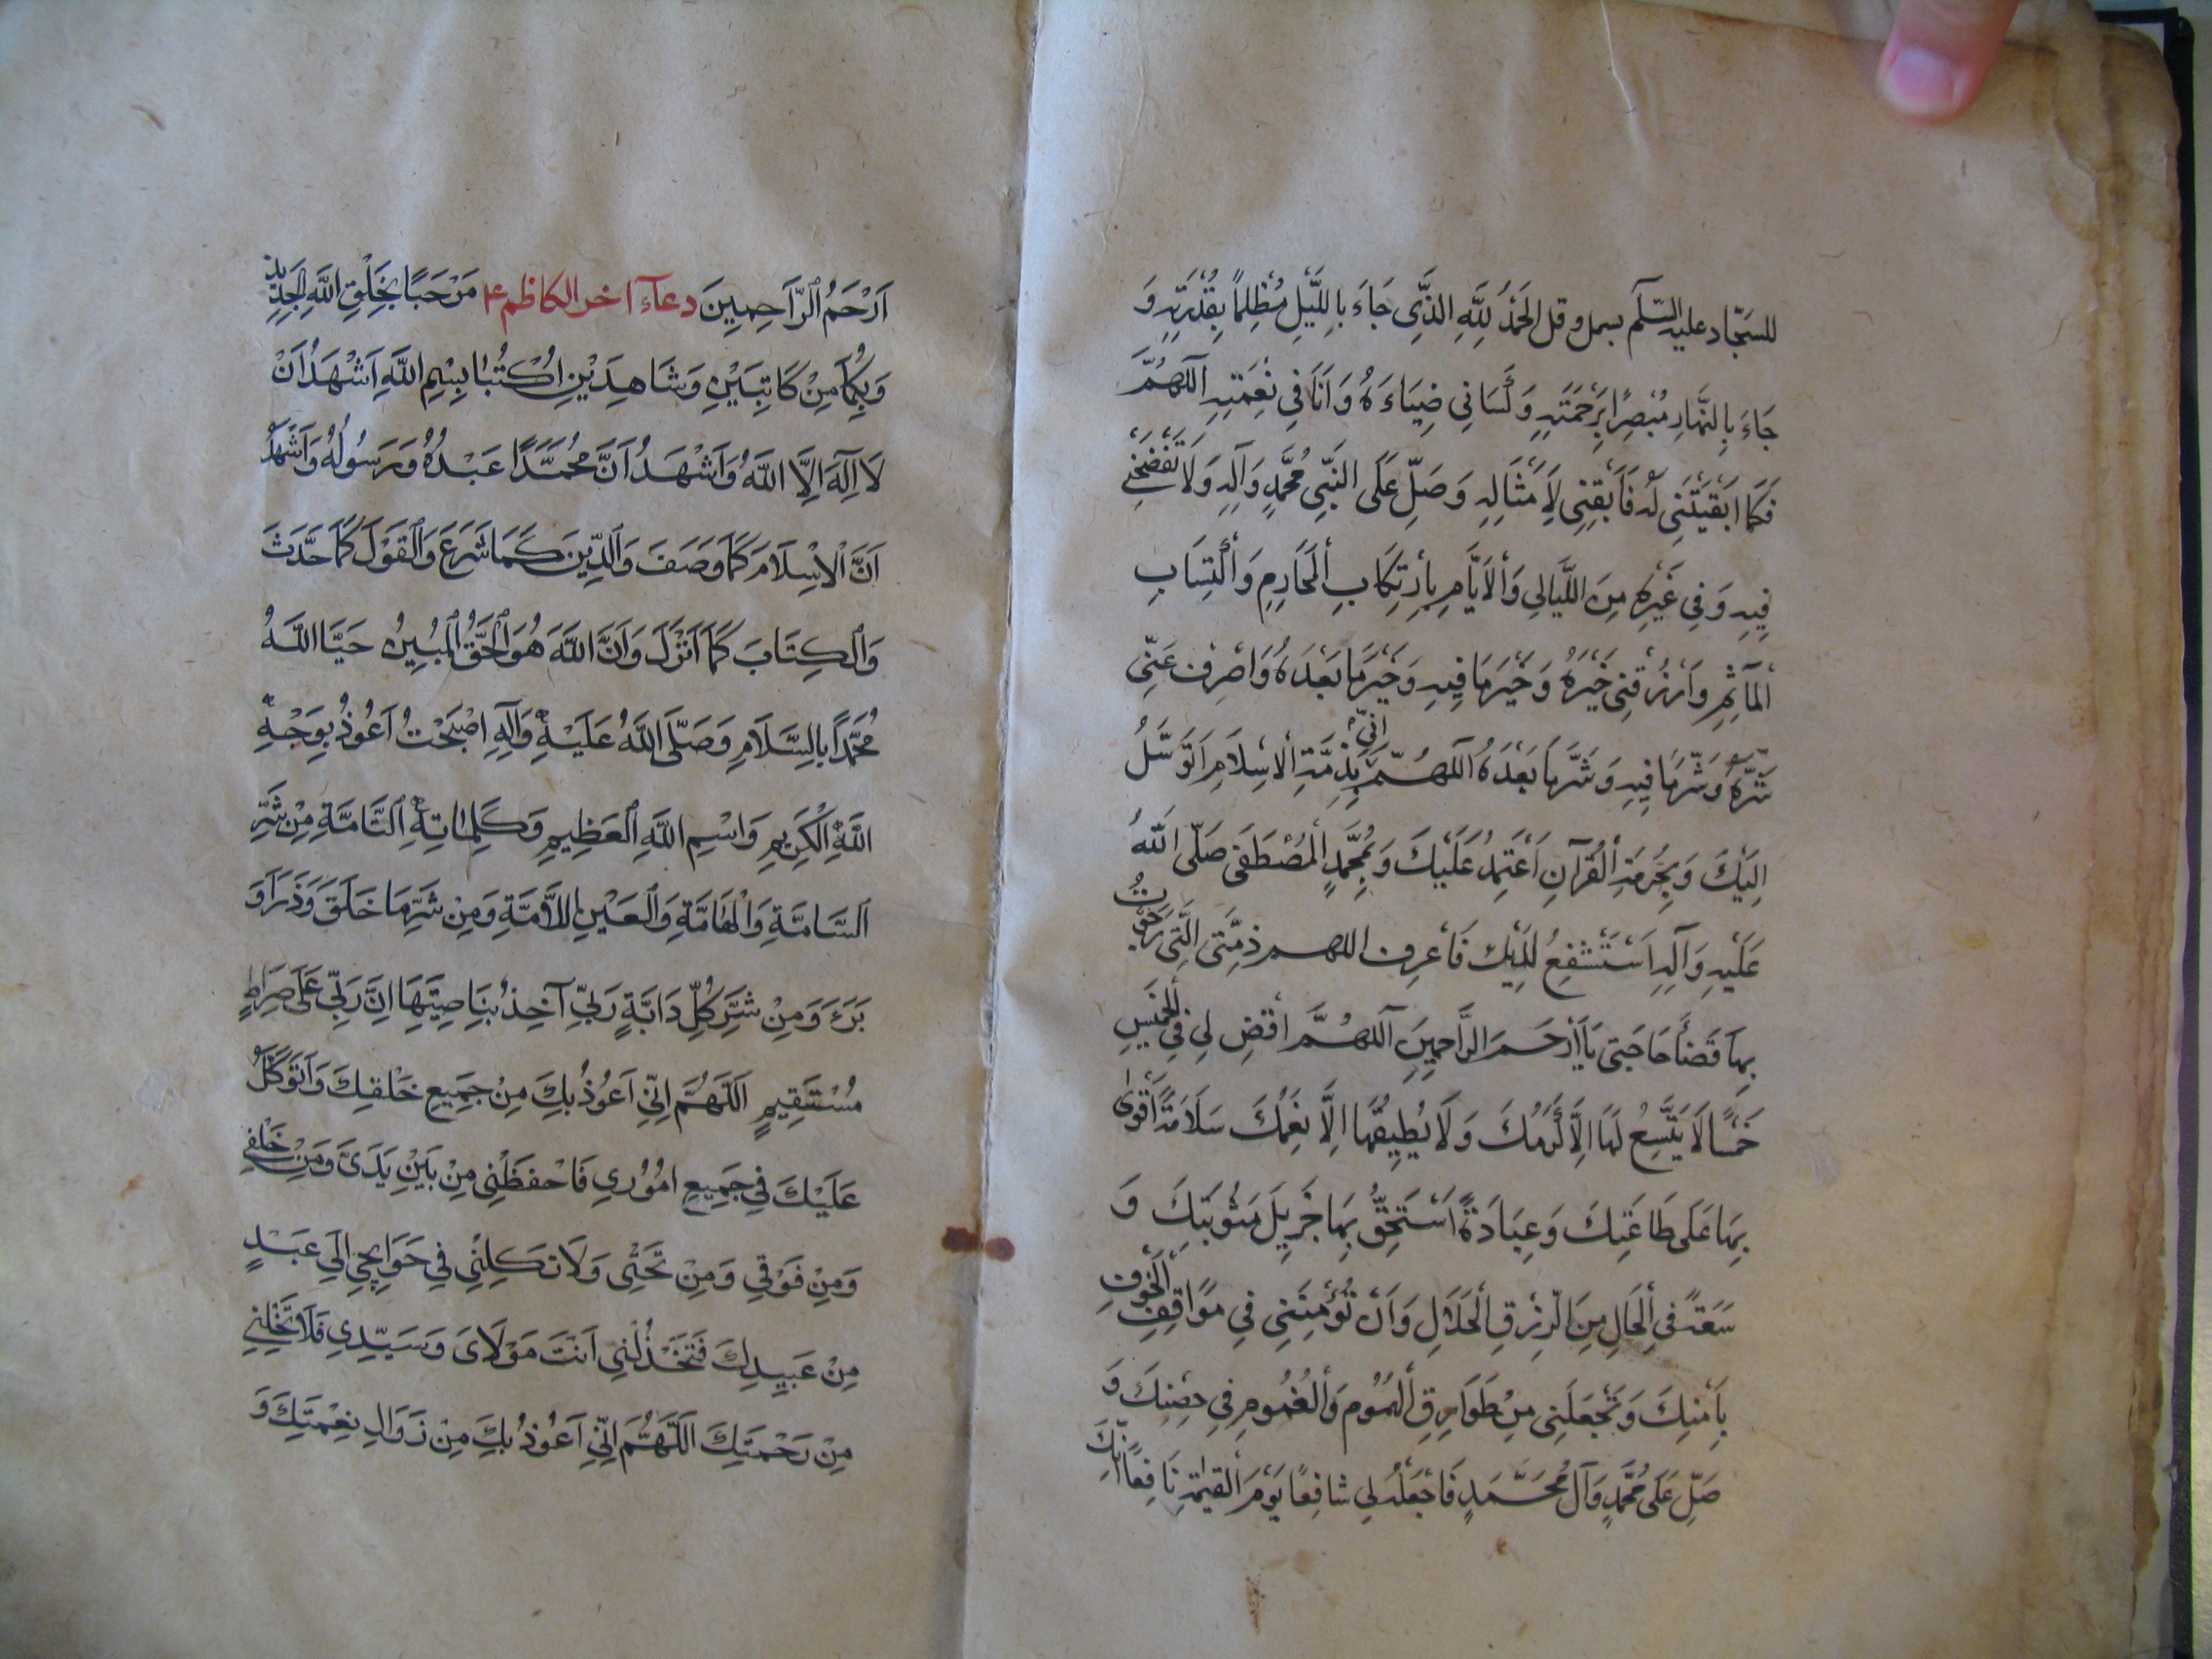 للسجّاد عليه السّلٰم بسمل وقل اَلْحَمْدُ لِلّٰهِ الَّذِى جَاءَ بِاللَّيْلِ مُظْلِماً بِقُدْرَتِهِ وَ
جَاءَ بِالنَّهَارِ مُبْصِرًا بِرَحْمَتِهِ وَكَسَانِى ضِيَاءَهُ وَاَنَا فِى نِعْمَتِهِ اَللّٰهُمَّ
فَكَمَا اَبْقَيْتَنِى لَهُ فَاَبْقِنِى لِاَمْثَالِهِ وَصَلِّ عَلَى النَّبِيِّ مُحَمَّدٍ وَآلِهِ وَلَا تَفْضَحْنِى
فِيهِ وَفِى غَيْرِهِ مِنَ اللَّيَالِى وَالْاَيَّامِ بِاِرْتِكَابِ الْمَحَارِمِ وَاكْتِسَابِ
الْمَآثِمِ وَارْزُقْنِى خَيْرَهُ وَخَيْرَ مَا فِيهِ وَخَيْرَ مَا بَعْدَهُ وَاصْرِفْ عَنِّى
شَرَّهُ وَشَرَّ مَا فِيهِ وَشَرَّ مَا بَعْدَهُ اَللّٰهُمَّ اِنِّى بِذِمَّةِ الْاِسْلَامِ اَتَوَسَّلُ
اِلَيْكَ وَبِحُرْمَةِ الْقُرْآنِ اَعْتَمِدُ عَلَيْكَ وَبِمُحَمَّدٍ الْمُصْطَفَى صَلَّى اللّٰهُ
عَلَيْهِ وَآلِهِ اَسْتَشْفِعُ لَدَيْكَ فَاعْرِفِ اللهم ذِمَّتِىَ الَّتِى رَجَوْتُ
بِهَا قَضَاءَ حَاجَتِى يَا اَرْحَمَ الرَّاحِمِينَ اَللّٰهُمَّ اقْضِ لِى فِى الْخَمِيسِ
خَمْسًا لَا يَتَّسِعُ لَهَا اِلَّا كَرَمُكَ وَلَا يُطِيقُهَا اِلَّا نِعَمُكَ سَلَامَةً اَقْوٰى
بِهَا عَلَى طَاعَتِكَ وَعِبَادَةً اَسْتَحِقُّ بِهَا جَزِيلَ مَثُوبَتِكَ وَ
سَعَةً فِى الْحَالِ مِنَ الرِّزْقِ الْحَلَالِ وَاَنْ تُؤْمِنَنِى فِى مَوَاقِفِ الْخَوْفِ
بِاَمْنِكَ وَتَجْعَلَنِى مِنْ طَوَارِقِ الْهُمُومِ وَالْغُمُومِ فِى حِصْنِكَ وَ
صَلِّ عَلَى مُحَمَّدٍ وَآلِ مُحَمَّدٍ فَاجْعَلْهُ لِى شَافِعًا يَوْمَ الْقِيٰمَةِ نَافِعًا اِنَّكَ
اَرْحَمُ الرَّاحِمِينَ دعآء اخر الكاظم ع مَرْحَبًا بِخَلْقِ اللَّهِ الْجَدِيدِ
وَبِكُمَا مِنْ كَاتِبَيْنِ وَشَاهِدَيْنِ اُكْتُبَا بِسْمِ اللَّهِ اَشْهَدُ اَنْ
لَا اِلٰهَ اِلَّا اللَّهُ وَاَشْهَدُ اَنَّ مُحَمَّدًا عَبْدُهُ وَرَسُولُهُ وَاَشْهَدُ
اَنَّ الْاِسْلَامَ كَمَا وَصَفَ وَالدِّينَ كَمَا شَرَعَ وَالْقَوْلَ كَمَا حَدَّثَ
وَالْكِتَابَ كَمَا اَنْزَلَ وَاَنَّ اللَّهَ هُوَ الْحَقُّ الْمُبِينُ حَيَّا اللَّهُ
مُحَمَّدًا بِالسَّلَامِ وَصَلَّى اللَّهُ عَلَيْهِ وَآلِهِ اَصْبَحْتُ اَعُوذُ بِوَجْهِ
اللَّهِ الْكَرِيمِ وَاسْمِ اللَّهِ الْعَظِيمِ وَكَلِمَاتِهِ التَّامَّةِ مِنْ شَرِّ
السَّامَّةِ وَالْهَامَّةِ وَالْعَيْنِ اللَّامَّةِ وَمِنْ شَرِّ مَا خَلَقَ وَذَرَاَ وَ
بَرَءَ وَمِنْ شَرِّ كُلِّ دَابَّةٍ رَبِّي آخِذٌ بِنَاصِيَتِهَا اِنَّ رَبِّي عَلَى صِرَاطٍ
مُسْتَقِيمٍ اَللَّهُمَّ اِنِّي اَعُوذُ بِكَ مِنْ جَمِيعِ خَلْقِكَ وَاَتَوَكَّلُ
عَلَيْكَ فِي جَمِيعِ اُمُورِي فَاحْفَظْنِى مِنْ بَيْنِ يَدَىَّ وَمِنْ خَلْفِي
وَمِنْ فَوْقِي وَمِنْ تَحْتِى وَلَا تَكِلْنِى فِي حَوَايِجِي اِلَى عَبْدٍ
مِنْ عَبِيدِكَ فَتَخْذُلَنِي اَنْتَ مَوْلَاىَ وَسَيِّدِي فَلَا تُخَيِّبْنِي
مِنْ رَحْمَتِكَ اَللَّهُمَّ اِنِّي اَعُوذُ بِكَ مِنْ زَوَالِ نِعْمَتِكَ وَ